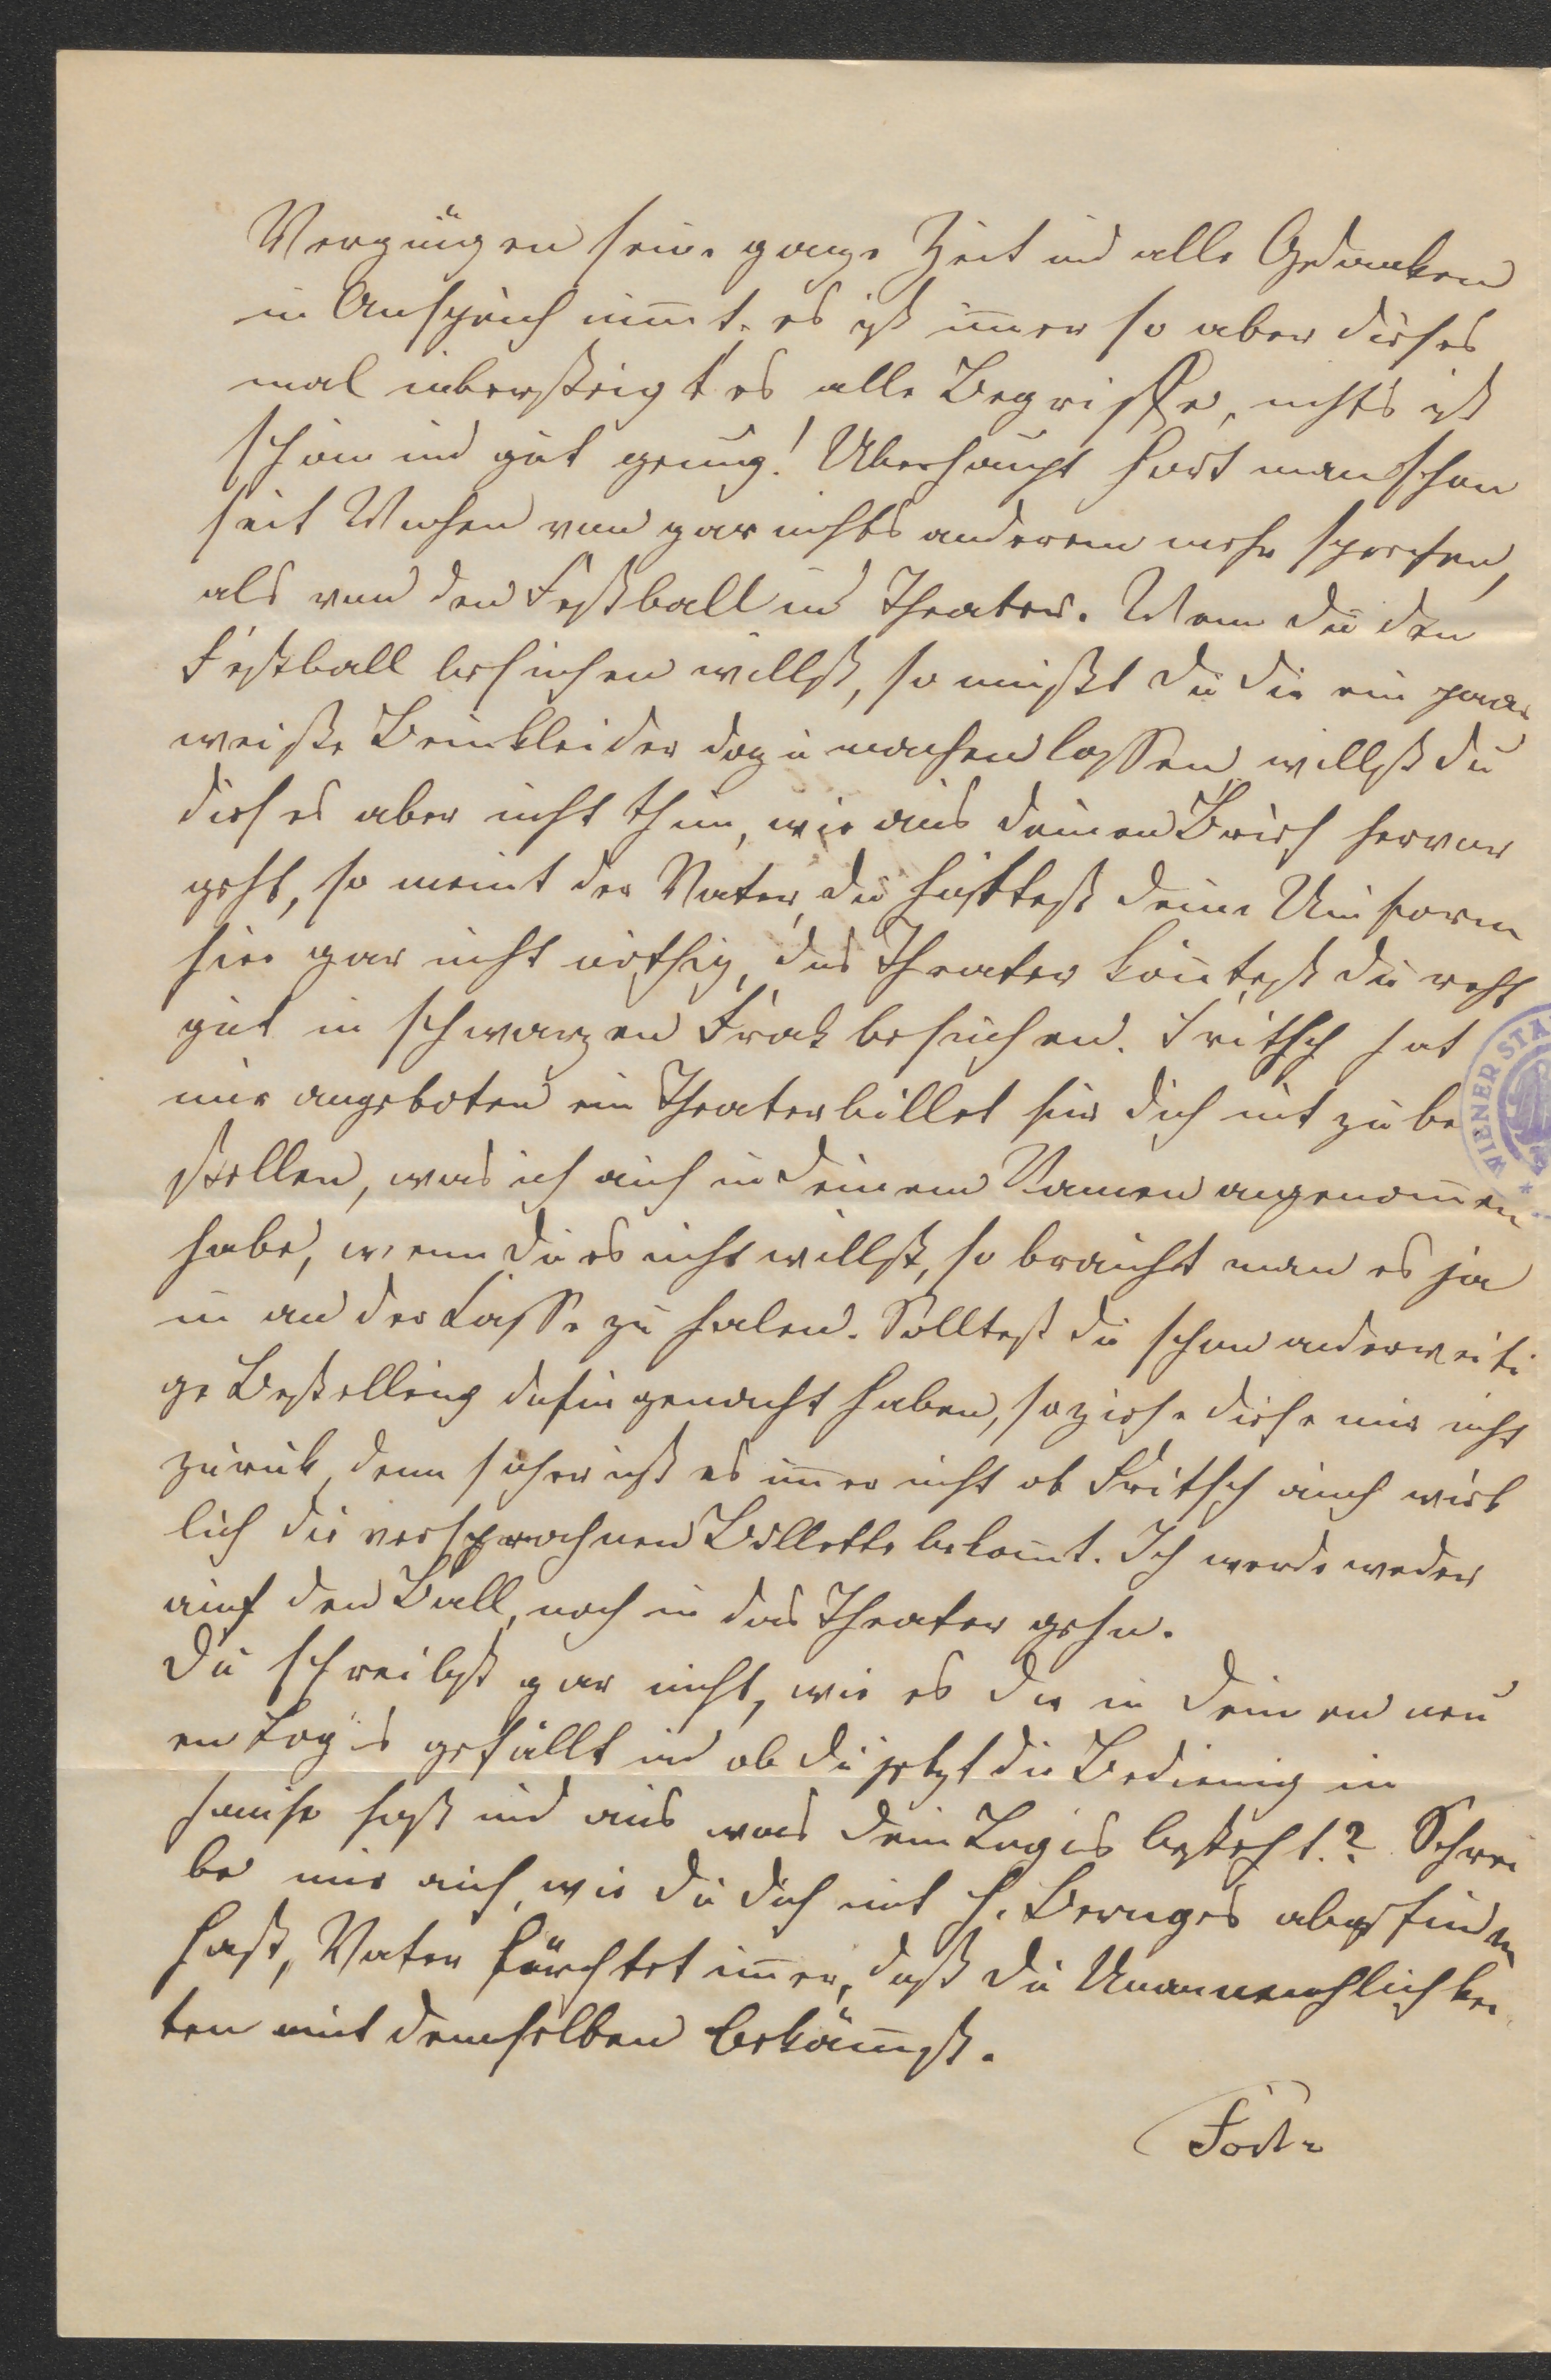 Vergnügen seine ganze Zeit und alle Gedanken
in Anspruch nim̄t. es ist im̄er so aber dieses
mal übersteigt es alle Begriffe, nichts ist
schön und gut genug! Überhaupt hört man schon
seit Wochen von gar nichts anderem mehr sprechen,
als von den Festball und Theater. Wenn du den
Festball besuchen willst, so mußt du dir ein paar
weiße Beinkleider dazu machen lassen willst du
dieses aber nicht thun, wie aus deinen Brief hervor
geht, so meint der Vater, du hättest deine Uniform
hier gar nicht nöthig, das Theater kön̄test du recht
gut in schwarzen Frak besuchen. Fritsch hat
mir angeboten ein Theaterbillet für dich mit zu be
stellen, was ich auch in deinem Namen angenom̄en
habe, wenn du es nicht willst, so braucht man es ja
n an der Casse zu holen. Solltest du schon anderweiti
ge Bestellung dafür gemacht haben, so ziehe diese nur nicht
zurück, denn sicher ist es im̄er nicht ob Fritsch auch wirk
lich die versprochnen Billette bekom̄t. Ich werde weder
auf den Ball, noch in das Theater gehn.
Du schreibst gar nicht, wie es dir in deinen neu
en Logis gefällt und ob du jetzt die Bedienung im
Hause hast und aus was dein Logis besteht.? Schrei
be mir auch, wie du dich mit H. abgefunden
hast, Vater fürchtet im̄er, daß du Unannehmlichkei
ten mit demselben bekäm̄st.
WIENER STA